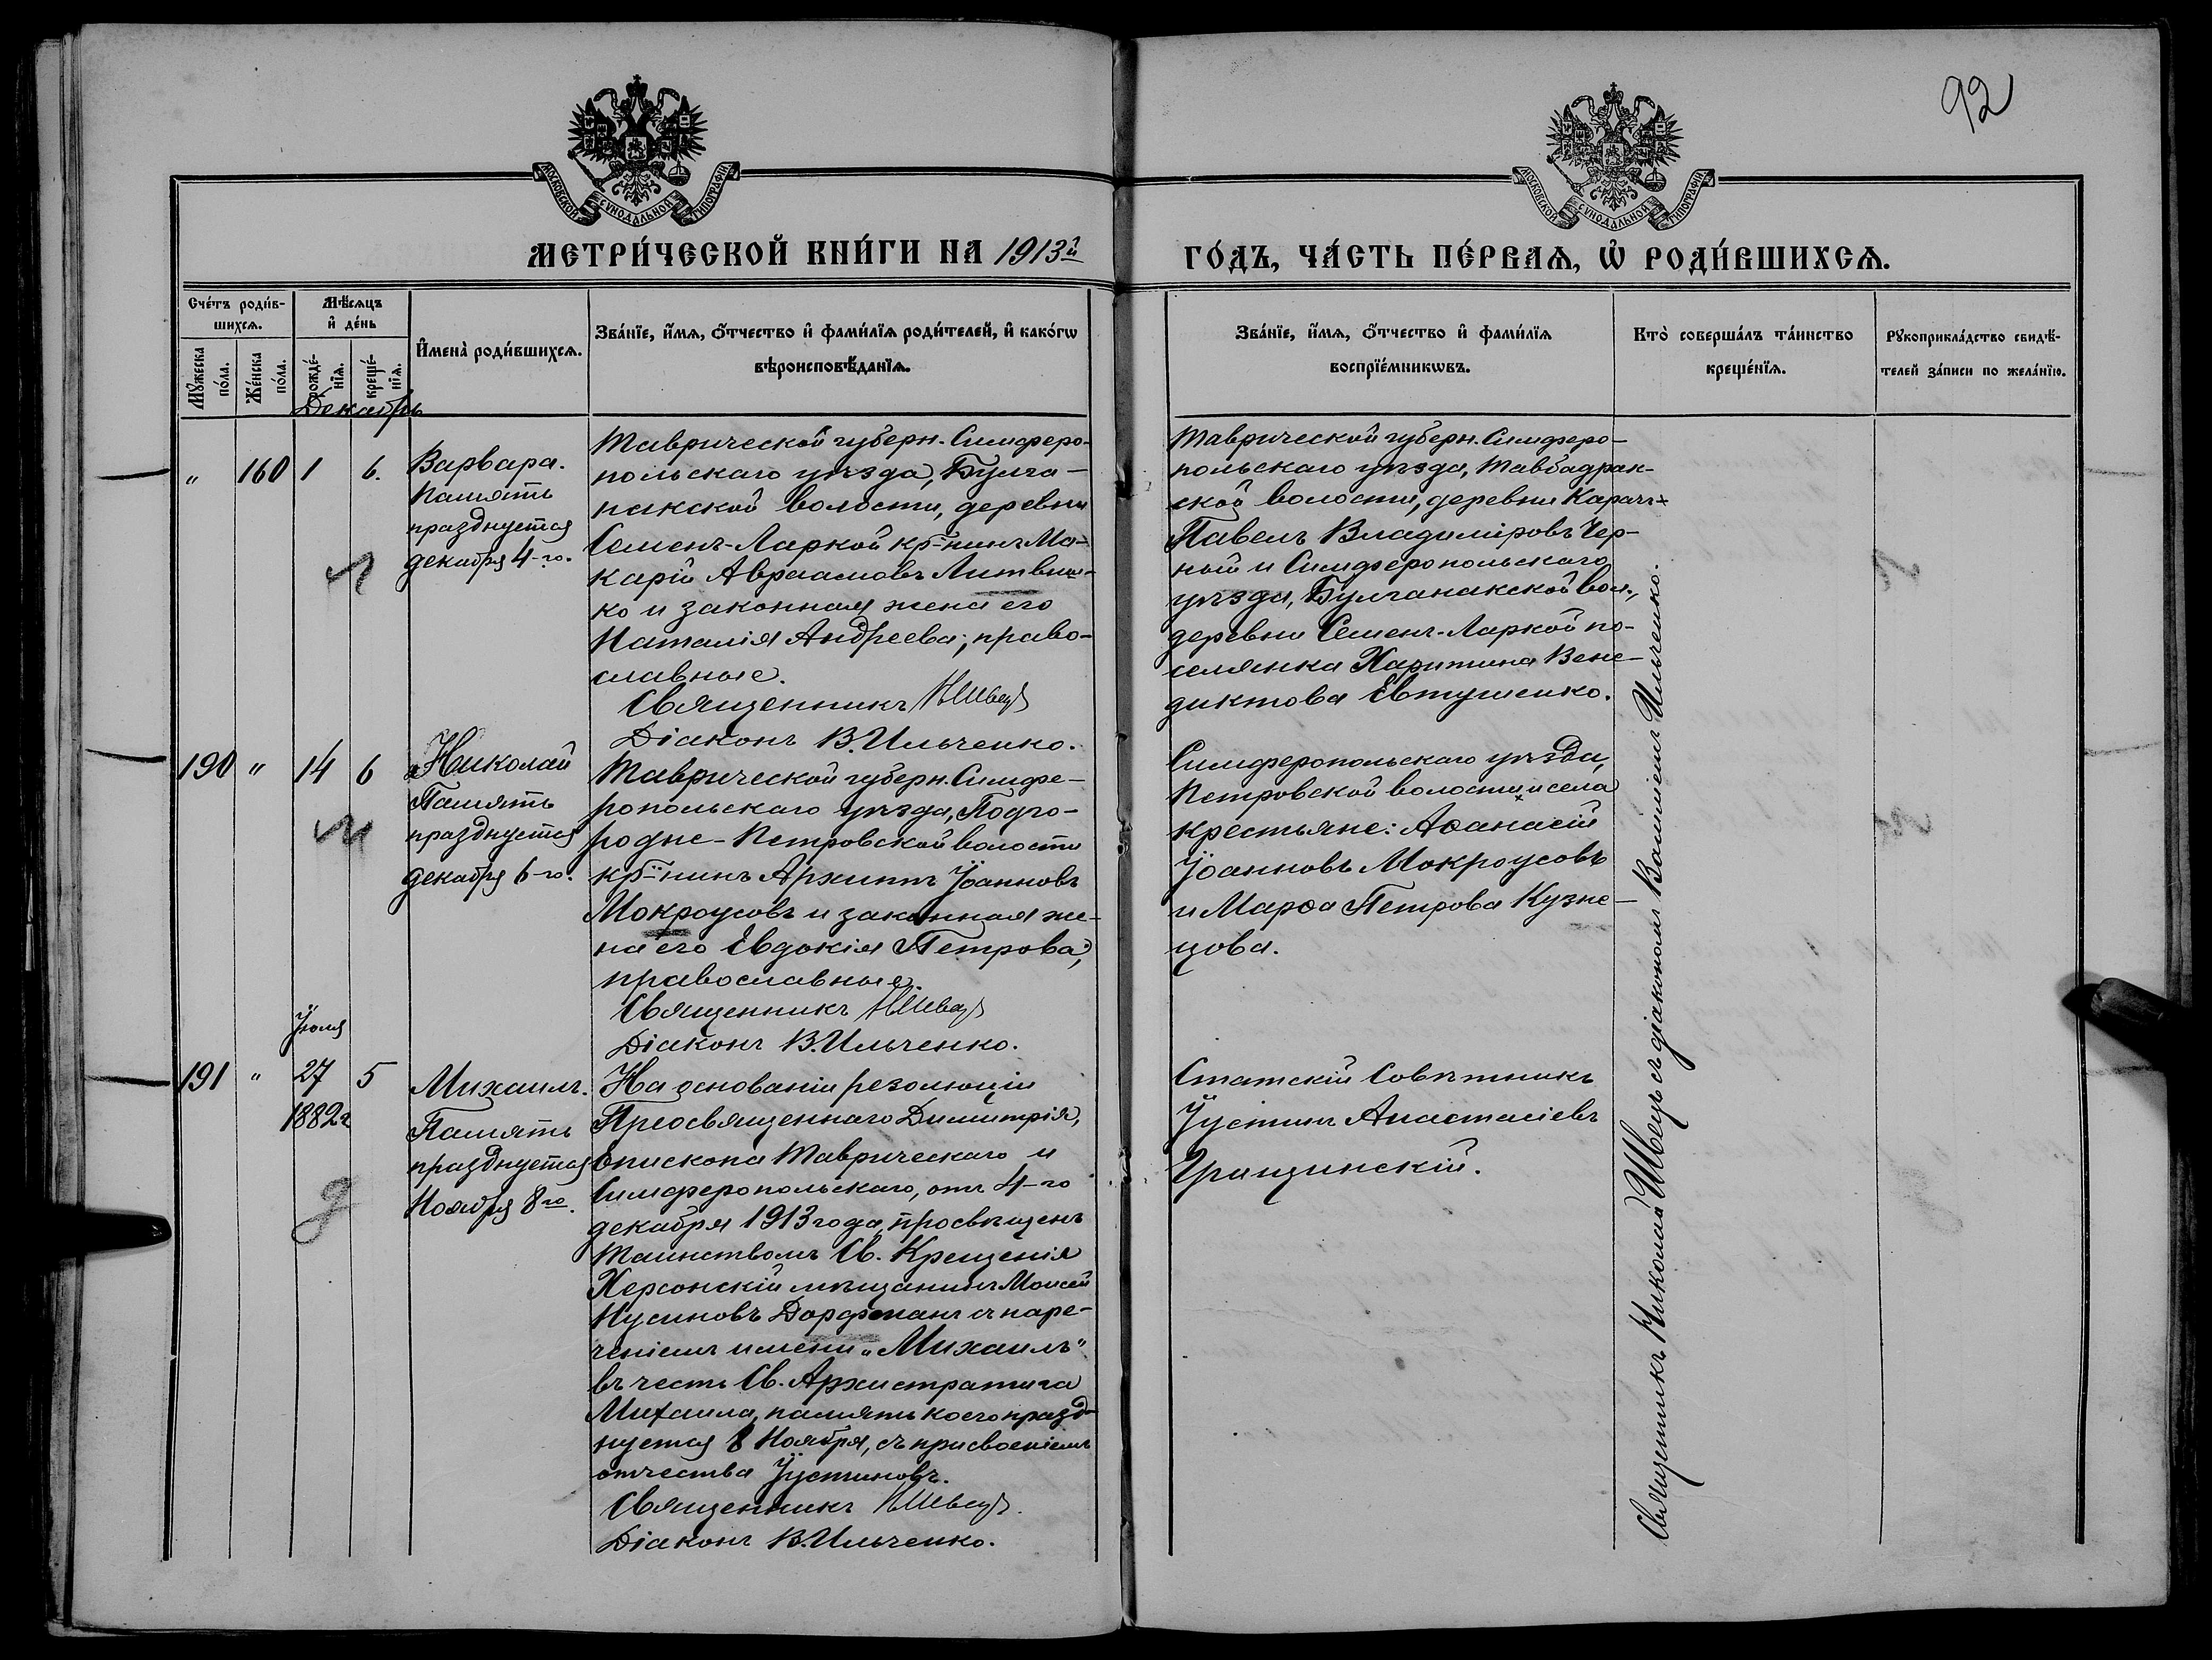 92
МОСКОВСКОЙ СѴНОДАЛЬНОЙ ТИПОГРАФІИ
МОСКОВСКОЙ СѴНОДАЛЬНОЙ ТИПОГРАФІИ
МЕТРИ́ЧЕСКОЙ КНИ́ГИ НА 1913й
ГО́ДЪ, ЧА́СТЬ ПЕ́РВАѦ, Ѡ҆ РОДИ́ВШИХСѦ.
Сче́тъ роди́в-
шихсѧ.
Мꙋ́жеска по́ла.
Же́нска по́ла.
Мѣ́сѧцъ
и҆ де́нь
рожде́-
нїѧ.
креще́-
нїѧ.
И҆мена̀ роди́вшихсѧ.
Зва́нїе, и҆́мѧ, ѻ҆́тчество и҆ фами́лїѧ роди́телей, и҆ како́гѡ
вѣроисповѣ́данїѧ.
Зва́нїе, и҆́мѧ, ѻ҆́тчество и҆ фами́лїѧ
воспрїе́мникѡвъ.
Кто̀ соверша́лъ та́инство
креще́нїѧ.
Рꙋкоприкла́дство свидѣ́-
телей за́писи по жела́нїю.
Декабрь
" 160 1 6.
Варвара.
Память
празднуется
декабря 4-го.
Таврической губерн. Симферо-
польскаго уѣзда, Булга-
накской волости, деревни
Семенъ-Ларкой кр-нинъ Ма-
карій Авраамовъ Литвин-
ко и законная жена его
Наталія Андреева; право-
славные.
Священникъ Н Швецъ
Діаконъ В. Ильченко.
Таврической губерн. Симферо-
польскаго уѣзда, Тавбадрак-
ской волости, деревни Карачъ
Павелъ Владиміровъ Чер-
ный и Симферопольскаго
уѣзда, Булганакской вол.,
деревни Семенъ-Ларкой по-
селянка Харитина Вене-
диктова Евтушенко.
190 " 14 6
Николай
Память
празднуется
декабря 6-го.
Таврической губерн. Симфе-
ропольскаго уѣзда, Подго-
родне-Петровской волости
кр-нинъ Архипъ Іоанновъ
Мокроусовъ и законная же-
на его Евдокія Петрова,
православные.
Священникъ Н Швецъ
Діаконъ В. Ильченко.
Симферопольскаго уѣзда,
Петровской волости и села
крестьяне: Аѳанасій
Іоанновъ Мокроусовъ
и Марѳа Петрова Кузне-
цова.
Іюля
191 " 27 5
1882г
Михаилъ.
Память
празднуется
Ноября 8го.
На основаніи резолюціи
Преосвященнаго Димитрія,
Епископа Таврическаго и
Симферопольскаго, отъ 4-го
декабря 1913 года, просвѣщенъ
Таинствомъ Св. Крещенія
Херсонскій мѣщанинъ Моисей
Нусиновъ Дорфманъ съ наре-
ченіемъ имени „Михаилъ"
въ честь Св. Архистратига
Михаила, память коего празд-
нуется 8 Ноября, съ присвоеніемъ
отчества Іустиновъ.
Священникъ Н Швецъ.
Діаконъ В. Ильченко.
Статскій Совѣтникъ
Іустинъ Анастасіевъ
Грищинскій.
Священникъ Николай Швецъ съ діакономъ Василіемъ Ильченко.